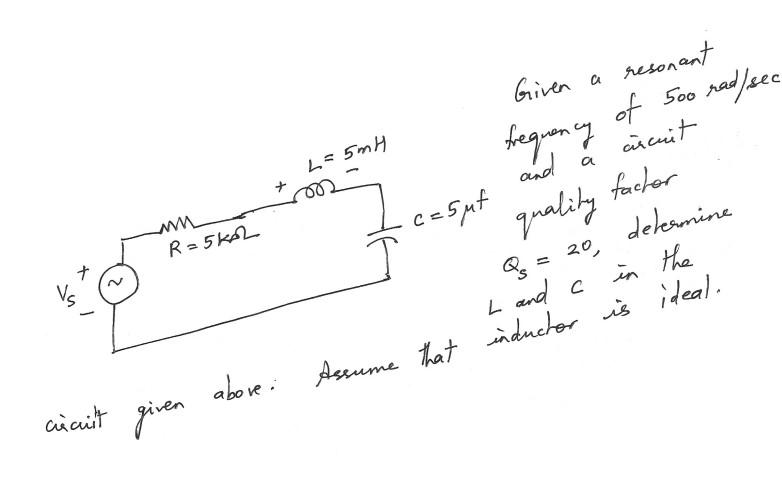 Given a resonant
frequency of 500 rad/sec
and a circuit
quality factor
Qs = 20, determine
L and C in the
circuit given above. Assume that inductor is ideal.
L = 5mH
+ −
R = 5kΩ
C = 5μf
+
Vs ~
−